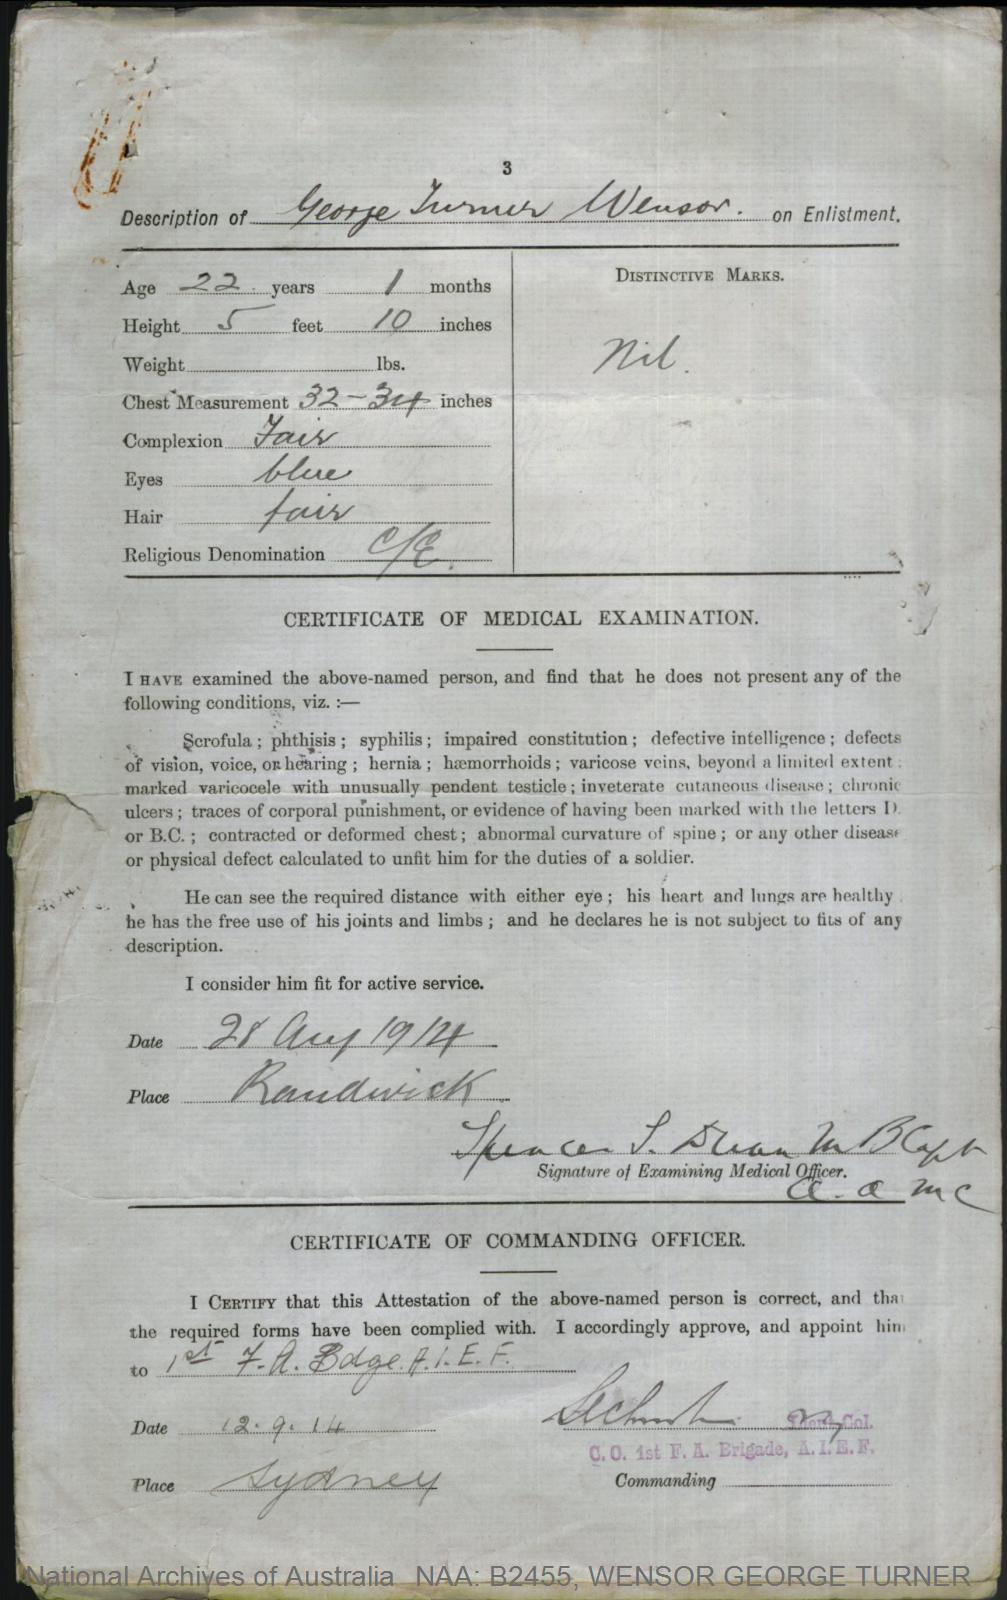 3
Description of George Turner Wensor. on Enlistment.
Age 22 years 1 months
Height 5 feet 10 inches
Weight lbs.
Chest Measurement 32-34 inches
Complexion Fair
Eyes blue
Hair fair
Religious Denomination C/E.
DISTINCTIVE MARKS.
Nil.
CERTIFICATE OF MEDICAL EXAMINATION.
I HAVE examined the above-named person, and find that he does not present any of the
following conditions, viz. :—
Scrofula ; phthisis ; syphilis ; impaired constitution ; defective intelligence ; defects
of vision, voice, or hearing ; hernia ; hæmorrhoids ; varicose veins, beyond a limited extent ;
marked varicocele with unusually pendent testicle ; inveterate cutaneous disease ; chronic
ulcers ; traces of corporal punishment, or evidence of having been marked with the letters D.
or B.C. ; contracted or deformed chest ; abnormal curvature of spine ; or any other disease
or physical defect calculated to unfit him for the duties of a soldier.
He can see the required distance with either eye ; his heart and lungs are healthy ;
he has the free use of his joints and limbs ; and he declares he is not subject to fits of any
description.
I consider him fit for active service.
Date 28 Aug 1914
Place Randwick
Spencer S. M B Capt
Signature of Examining Medical Officer.
A. A M C
CERTIFICATE OF COMMANDING OFFICER.
I CERTIFY that this Attestation of the above-named person is correct, and that
the required forms have been complied with. I accordingly approve, and appoint him
to 1st F. A. Bdge. A. I. E. F.
Date 12. 9. 14
Lieut-Col.
C. O. 1st F. A. Brigade, A. I. E. F.
Place Sydney
Commanding
National Archives of Australia NAA: B2455, WENSOR GEORGE TURNER